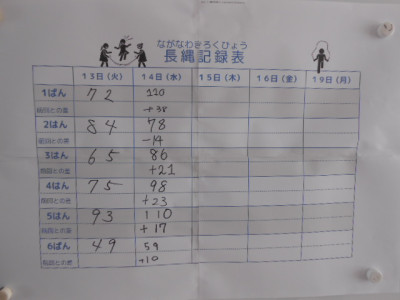 ながなわきろくひょう
長縄記録表
13日（火） 14日（水） 15日（木） 16日（金） 19日（月）
1ぱん 72 110
前回との差 +38
2はん 84 78
前回との差 -14
3ぱん 65 86
前回との差 +21
4はん 75 98
前回との差 +23
5はん 93 110
前回との差 +17
6ぱん 49 59
前回との差 +10